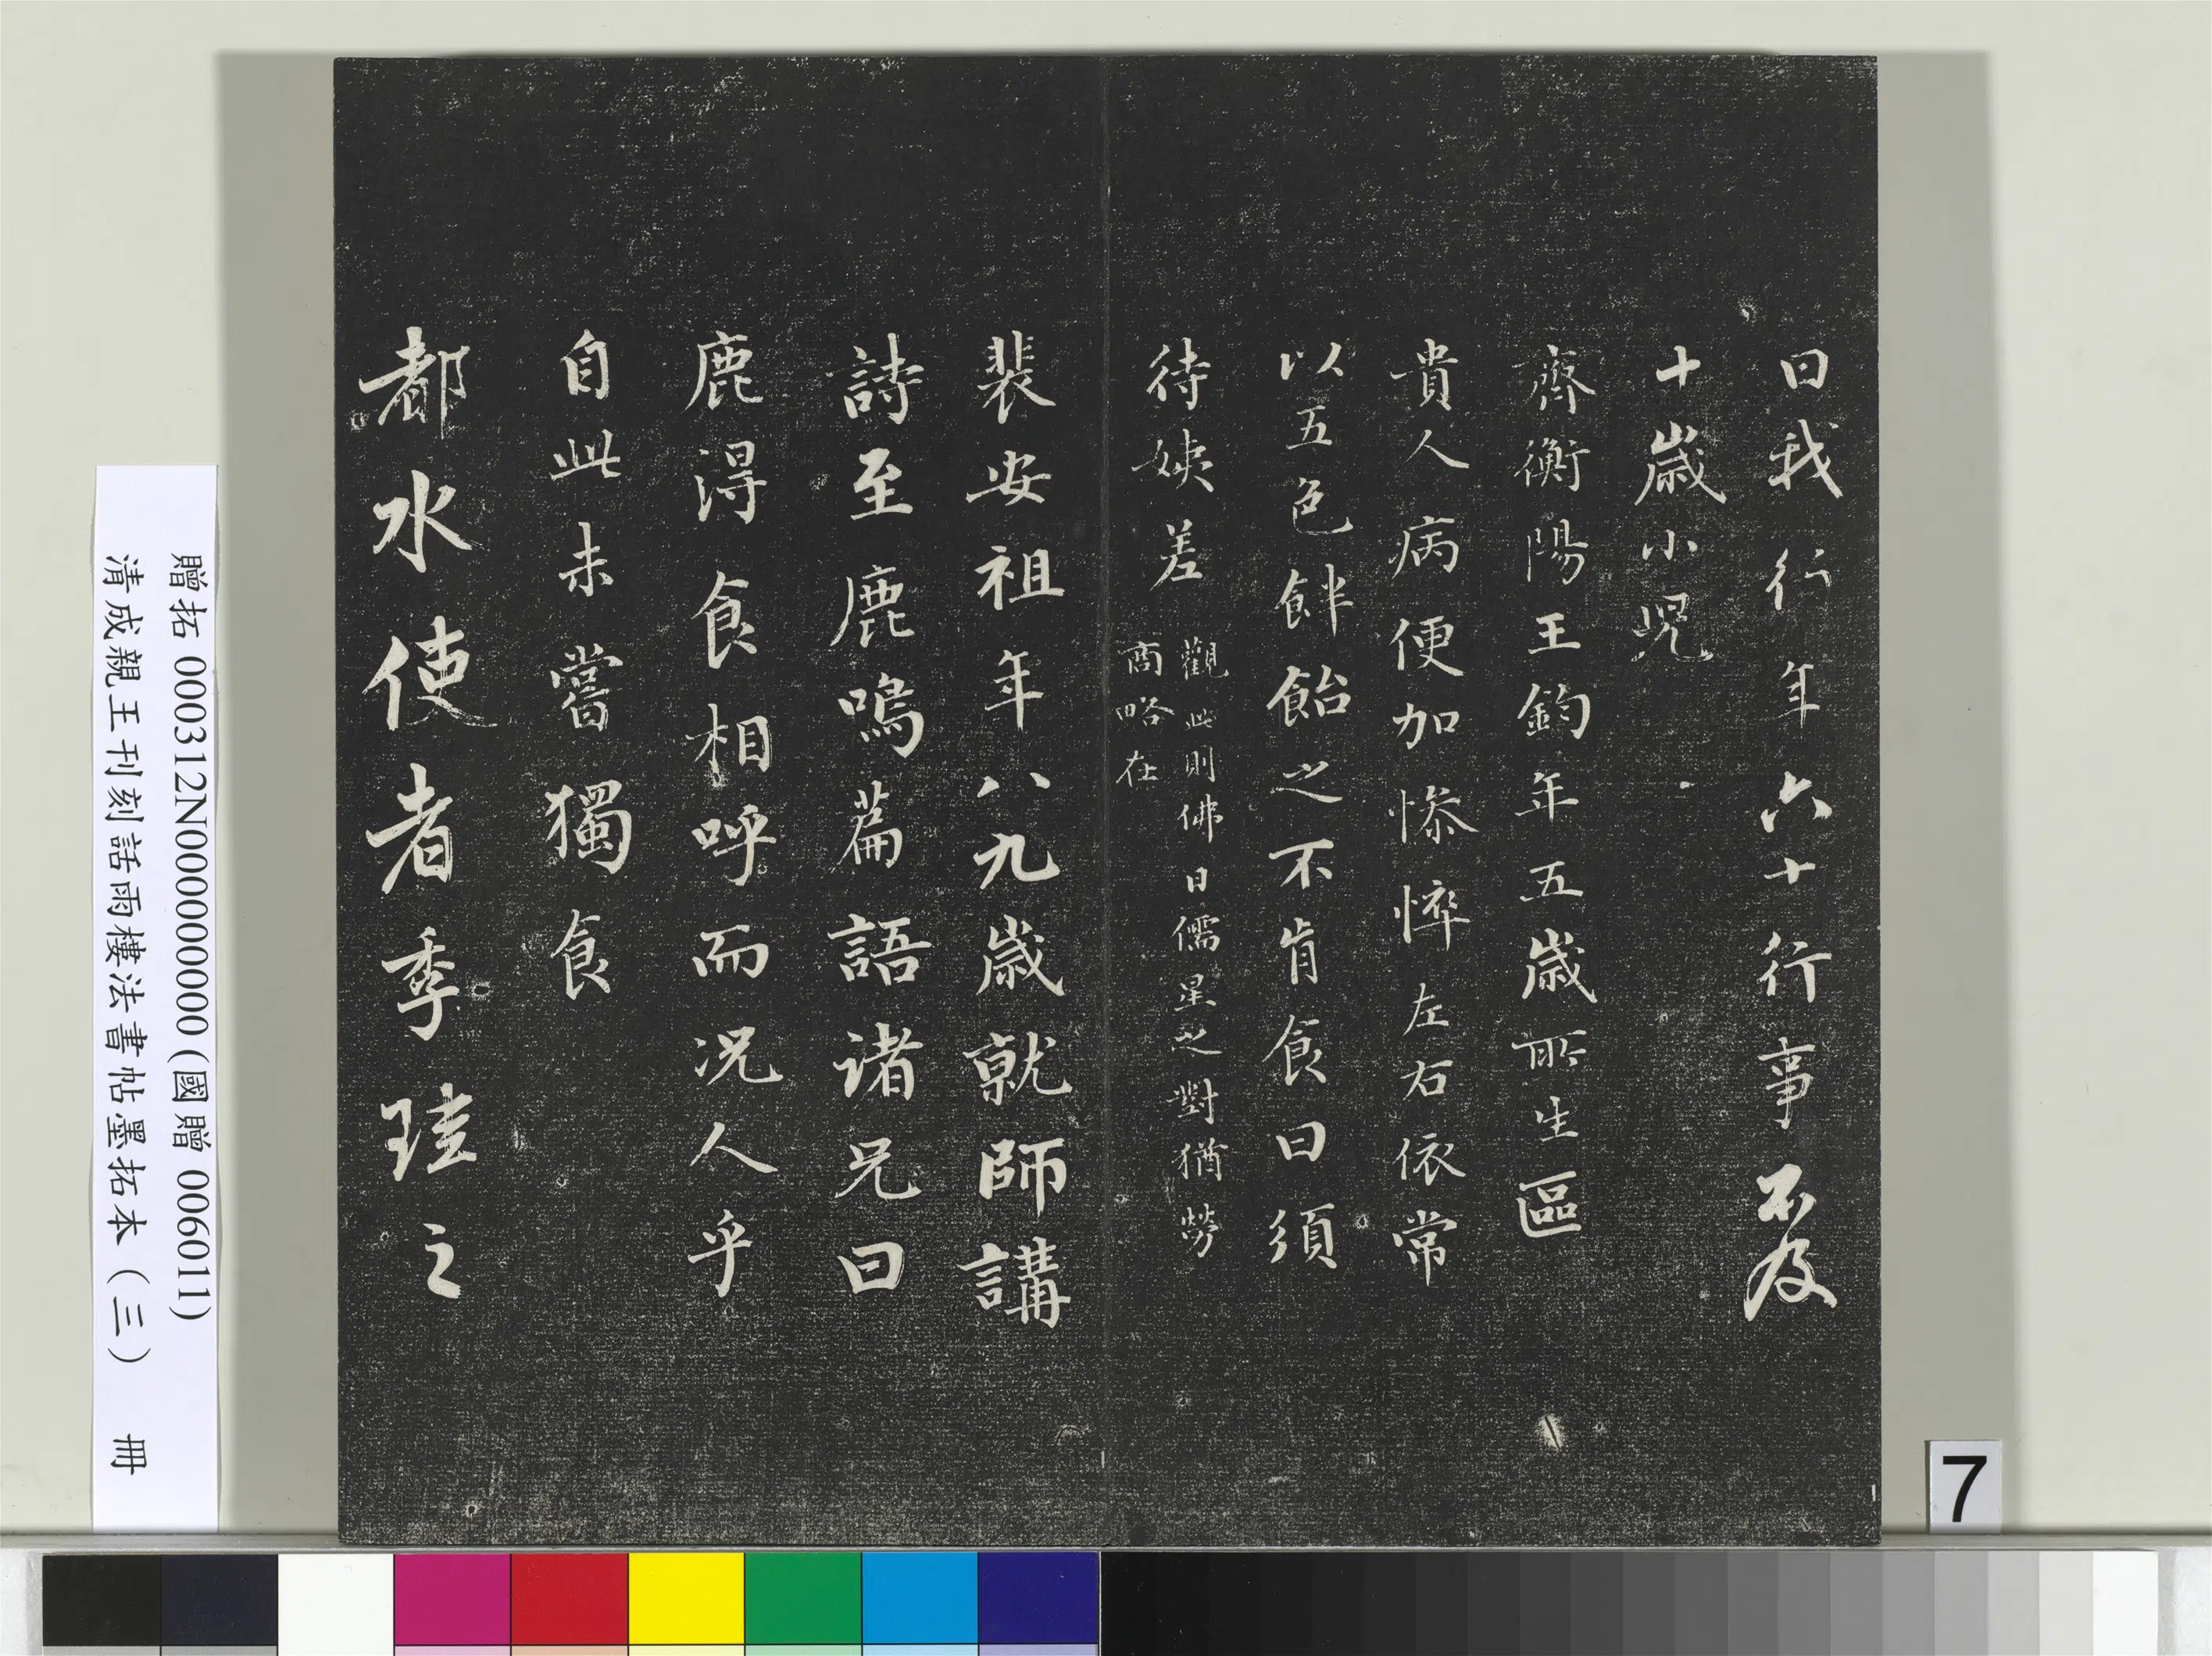 曰我行年六十行事不及
十歲小児
齊衡陽王鈞年五歲所生區
貴人病便加慘悴左右依常
以五色飰飴之不肯食曰須
待姨差
觀此則佛日儒星之對猶勞
商略在
裴安祖年八九歲就師講
詩至鹿鳴篇語諸兄曰
鹿得食相呼而况人乎
自此未嘗獨食
都水使者季珪之
贈拓 000312N000000000 (國贈 006011)
清成親王刊刻話雨樓法書帖墨拓本（三） 冊
7